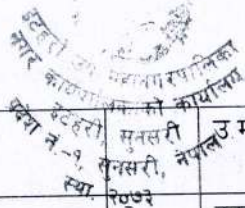 इटहरी उप महानगरपालिका
नगर कार्यपालिकाको कार्यालय
इटहरी, सुनसरी
प्रदेश नं. -१, सुनसरी, नेपाल
स्था. २०७३
उ.म